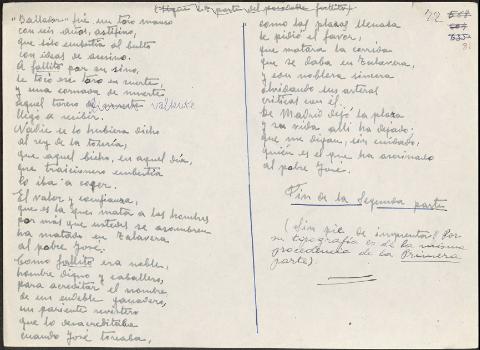 (Sigue la 2ª parte del pasodoble fallito)
"Bailador" fué un toro manso
con seis años, astifino,
que sólo embestía al bulto
con ideas de asesino.
A fallito por su sino,
le tocó ese toro en suerte,
y una cornada de muerte
aquel torero valiente
llegó a recibir.
Nadie se lo hubiera dicho
al rey de la torería,
que aquel bicho, en aquel día,
que traicionero embestía
lo iba a coger.
El valor y confianza,
que es la que mata a los hombres
por más que ustedes se asombren
ha matado en Talavera
al pobre José.
Como fallito era noble,
hombre digno y caballero,
para acreditar el nombre
de un endeble ganadero,
un pariente revistero
que lo desacreditaba
cuando José toreaba,
como las plazas llenaba
le pidió el favor,
que matara la corrida
que se daba en Talavera,
y con nobleza sincera
olvidando sus arteras
críticas con él
de Madrid dejó la plaza
y su vida allí ha dejado;
que me digan, sin cuidado,
quién es el que ha asesinado
al pobre José.
Fin de la Segunda parte
(Sin pie de imprenta. Por
su tipografía es de la misma
procedencia de la Primera
parte).
72